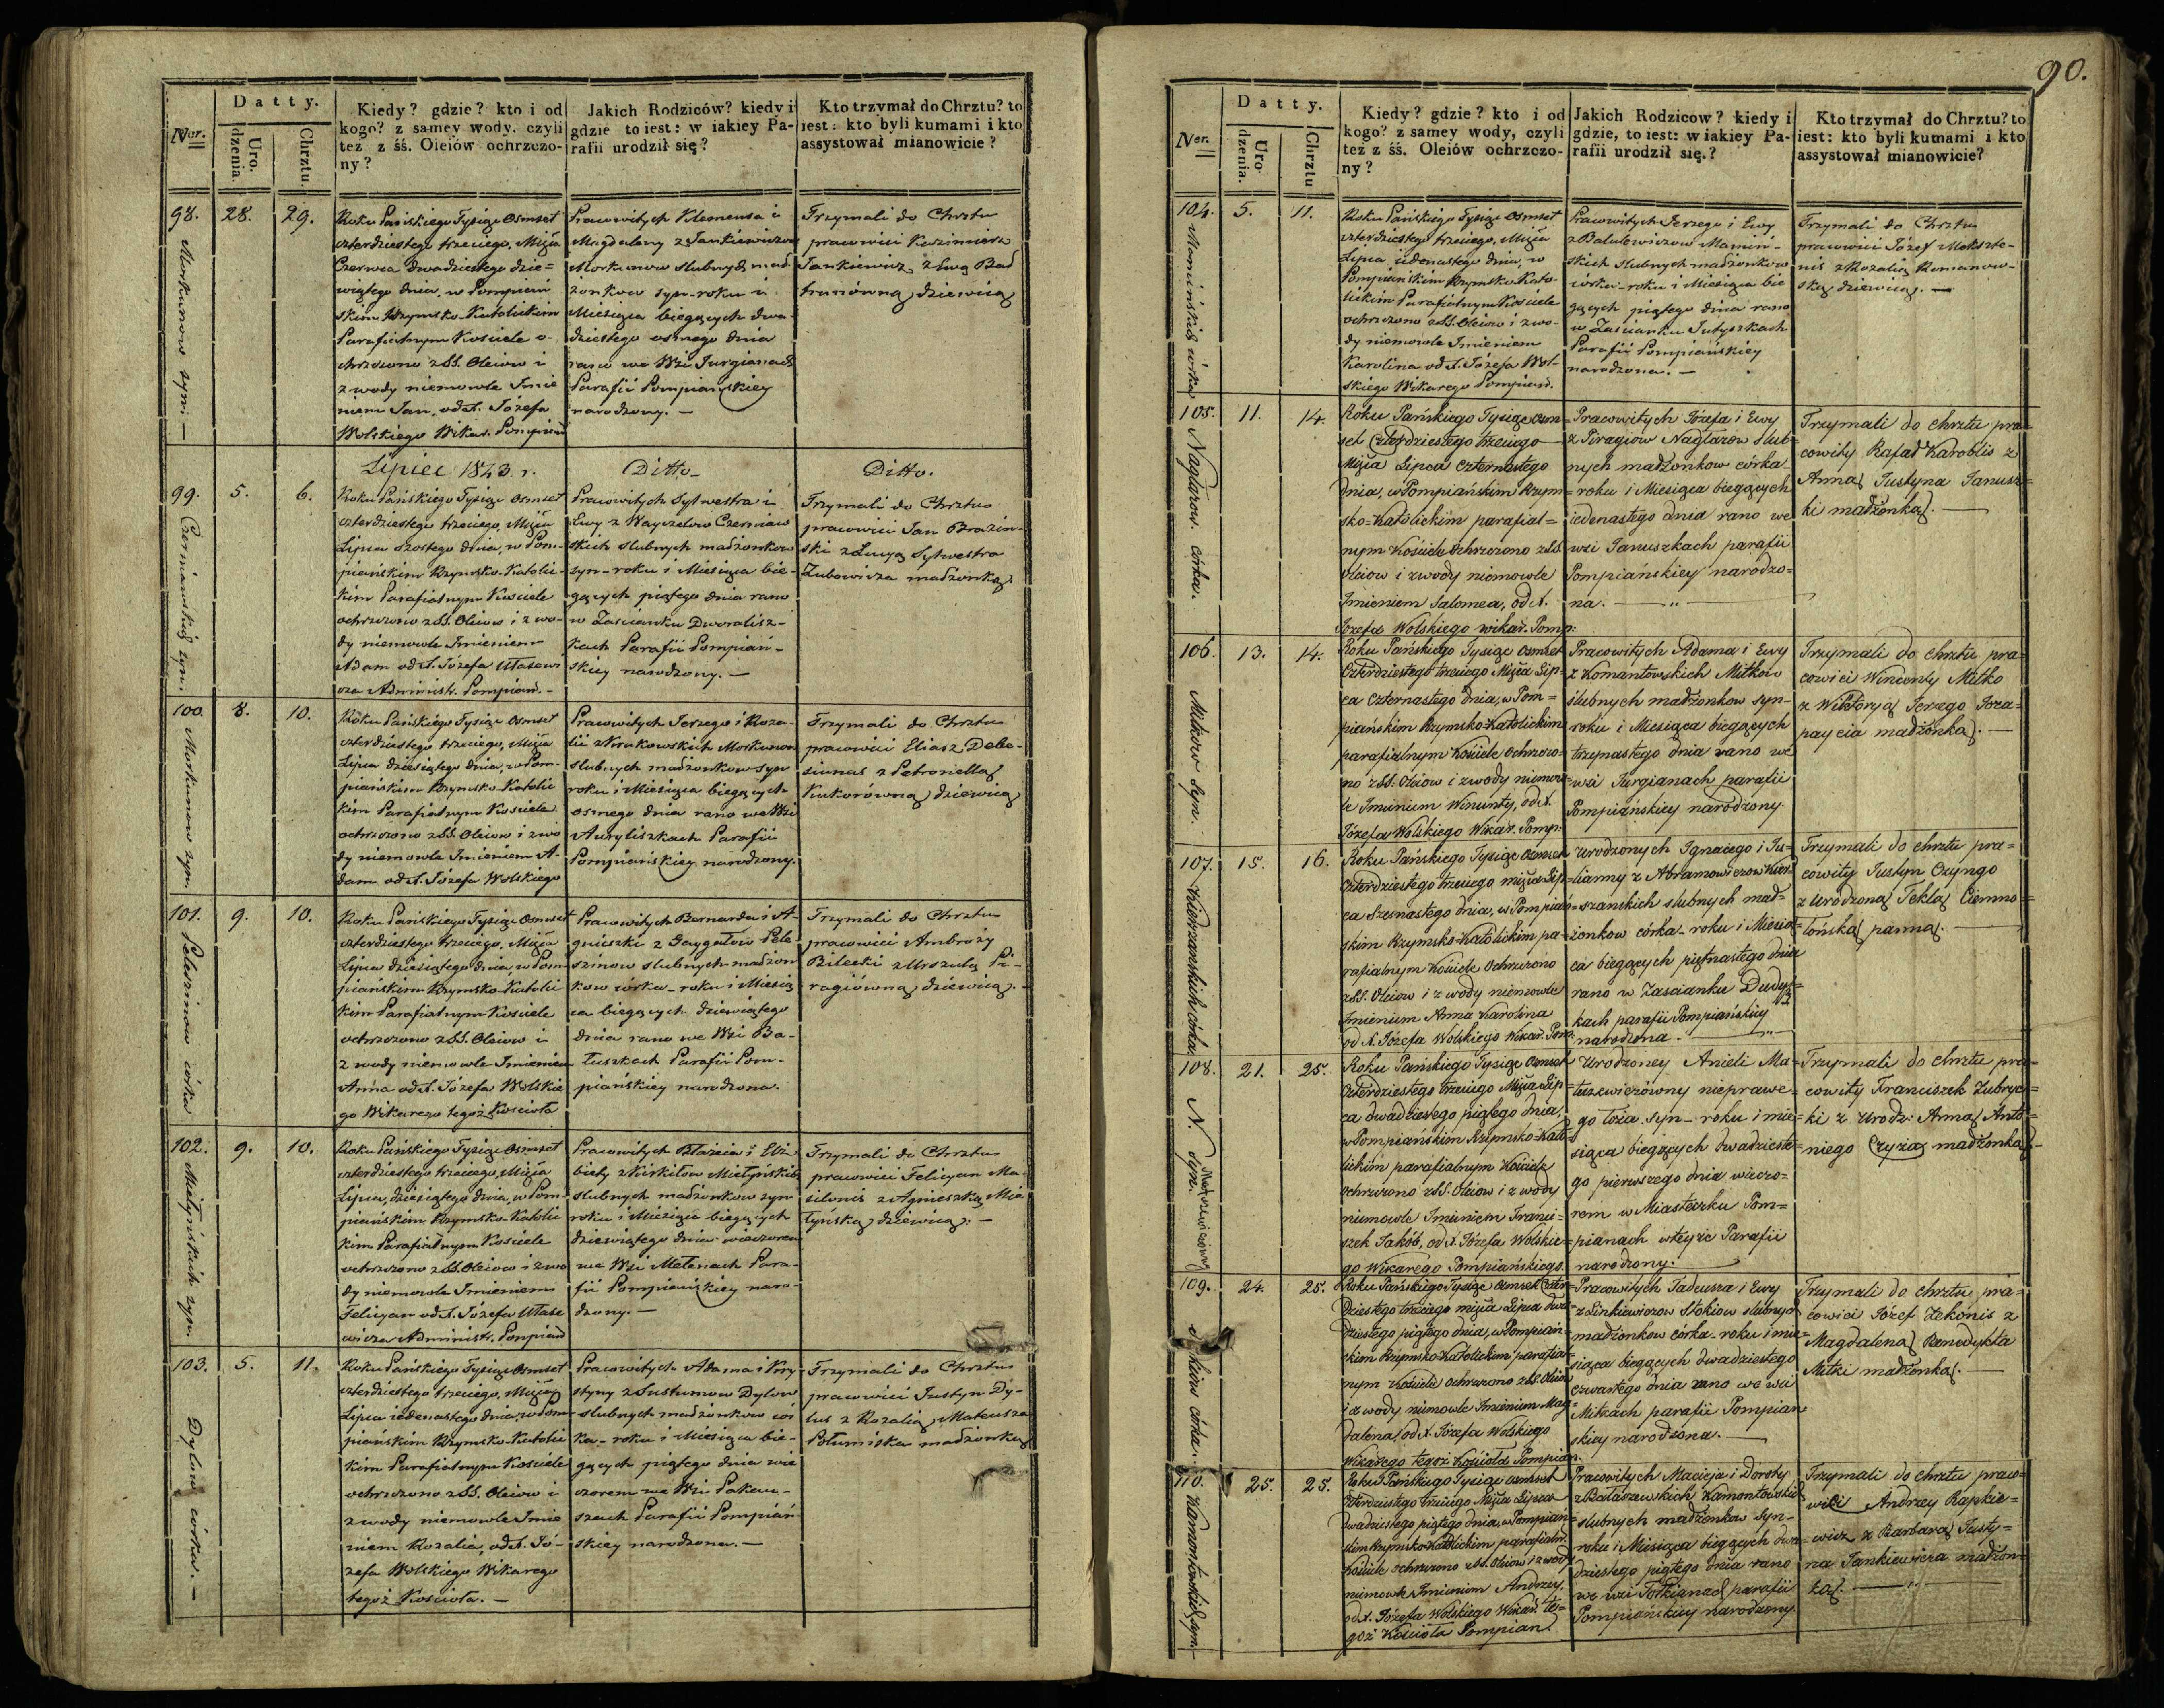 90.
Datty.
Ner.
Uro. dzenia.
Chrztu.
Kiedy? gdzie? kto i od
kogo? z samey wody, czyli
też z śś. Oleiów ochrzczo-
ny?
Jakich Rodziców? kiedy i
gdzie to iest: w iakiey Pa-
rafii urodził się?
Kto trzymał do Chrztu? to
iest: kto byli kumami i kto
assystował mianowicie?
98. 28. 29.
Morkunow syn. —
Roku Pańskiego Tysiąc Osmset
czterdziestego trzeciego, Mięsia
Czerwca dwadziestego dzie=
wiątego dnia, w Pompiań
skim Rzymsko-Katolickim
Parafialnym Kosciele o-
chrzczono z SS. Oleiow i
z wody niemowle Imie
niem Jan, od X. Józefa
Wolskiego Wikar. Pompiań
Pracowitych Klemensa i
Magdaleny z Jankiewiczow
Morkunow slubnych mał
żonkow syn - roku i
Miesiąca biegących dwa-
dziestego osmego dnia
rano we Wsi Jurgianach
Parafii Pompiańskiey
narodzony. —
Trzymali do Chrztu
pracowici Kazimierz
Jankiewicz z Ewą Bał
trunówną dziewicą
Lipiec 1843 r.
Ditto
Ditto.
99. 5. 6.
Czerniawskich syn.
Roku Pańskiego Tysiąc Osmset
czterdziestego trzeciego, Mięsia
Lipca szostego dnia, w Pom-
piańskim Rzymsko-Katolic-
kim Parafialnym Kosciele
ochrzczono z SS. Oleiow i z wo-
dy niemowle Imieniem
Adam od X. Józefa Ułasewi
cza Administ. Pompiań. -
Pracowitych Sylwestra i
Ewy z Wayzelow Czerniaw
skich slubnych małżonkow
syn - roku i Miesiąca bie-
gących piątego dnia rano
w Zascianku Dworalisz-
kach Parafii Pompiań-
skiey narodzony. —
Trzymali do Chrztu
pracowici Jan Brazin-
ski z Łucyą Sylwestra
Zubowicza małżonką
100. 8. 10.
Morkunow syn.
Roku Pańskiego Tysiąc Osmset
czterdziestego trzeciego, Mięsia
Lipca dziesiątego dnia, w Pom-
piańskim Rzymsko-Katolic
kim Parafialnym Kosciele
ochrzczono z SS. Oleiow i z wo
dy niemowle Imieniem A-
dam od X. Józefa Wolskiego
Pracowitych Jerzego i Roza-
lii z Krukowskich Morkunow
slubnych małżonkow syn
roku i Miesiąca biegących
osmego dnia rano we Wsi
Auryliszkach Parafii
Pompiańskiey narodzony.
Trzymali do Chrztu
pracowici Eliasz Debe-
siunas z Petronellą
Kukorówną dziewicą
101. 9. 10.
Peleszinow córka
Roku Pańskiego Tysiąc Osmset
czterdziestego trzeciego, Mięsia
Lipca dziesiątego dnia, w Pom
piańskim Rzymsko-Katolic
kim Parafialnym Kosciele
ochrzczono z SS. Oleiow i
z wody niemowle Imieniem
Anna od X. Józefa Wolskie
go Wikarego tegoż Kosciola
Pracowitych Bernarda i A-
gnieszki z Grygałow Pele
szinow slubnych małżon
kow córka - roku i Miesią
ca biegących dziewiątego
dnia rano we Wsi Ba-
łuszkach Parafii Pom-
piańskiey narodzona.
Trzymali do Chrztu
pracowici Ambroży
Bilecki z Urszulą Pi-
ragiówną dziewicą. -
102. 9. 10.
Mietyńskich syn.
Roku Pańskiego Tysiąc Osmset
czterdziestego trzeciego, Mięsia
Lipca, dziesiątego dnia, w Pom-
piańskim Rzymsko-Katolic
kim Parafialnym Kosciele
ochrzczono z SS. Oleiow i z wo
dy niemowle Imieniem
Felicyan od X. Józefa Ułase
wicza Administ. Pompiań
Pracowitych Błażeia i Elż
biety z Kirkiłow Mietyńskich
slubnych małżonkow syn
roku i Miesiąca biegących
dziewiątego dnia wieczorem
we Wsi Meteniach Para-
fii Pompiańskiey naro-
dzony. —
Trzymali do Chrztu
pracowici Felicyan Ma-
silonis z Agnieszką Mie
tyńską dziewicą. —
103. 5. 11.
Dylow córka. —
Roku Pańskiego Tysiąc Osmset
czterdziestego trzeciego, Mięsia
Lipca iedenastego dnia, w Pom
piańskim Rzymsko-Katolic
kim Parafialnym Kosciele
ochrzczono z SS. Oleiow i
z wody niemowle Imie
niem Rozalia, od X. Jó-
zefa Wolskiego Wikarego
tegoż Kosciola. —
Pracowitych Adama i Kry
styny z Sustunow Dylow
slubnych małżonkow cór
ka - roku i Miesiąca bie-
gących piątego dnia wie
czorem we Wsi Pakau-
szach Parafii Pompiań
skiey narodzona. —
Trzymali do Chrztu
pracowici Justyn Dy-
lus z Rozalią Mateusza
Połumiska małżonką
Datty.
Ner.
Uro dzenia.
Chrztu
Kiedy? gdzie? kto i od
kogo? z samey wody, czyli
też z śś. Oleiów ochrzczo-
ny?
Jakich Rodzicow? kiedy i
gdzie, to iest: w iakiey Pa-
rafii urodził się.?
Kto trzymał do Chrztu? to
iest: kto byli kumami i kto
assystował mianowicie?
104. 5. 11.
Mamińskich córka
Roku Pańskiego Tysiąc Osmset
czterdziestego trzeciego, Mięsia
Lipca iedenastego dnia, w
Pompiańskim Rzymsko-Kato-
lickim Parafialnym Kosciele
ochrzczono z SS. Oleiow i z wo-
dy niemowle Imieniem
Karolina od X. Józefa Wol-
skiego Wikarego Pompiań.
Pracowitych Jerzego i Ewy
z Balulewiczow Mamiń-
skich slubnych małżonkow
córka - roku i Miesiąca bie
gących piątego dnia rano
w Zascianku Jutyszkach
Parafii Pompiańskiey
narodzona. —
Trzymali do Chrztu
pracowici Józef Moksze-
nis z Rozalią Romanow-
ską dziewicą. —
105. 11. 14.
Naglazow. córka.
Roku Pańskiego Tysiąc Osm=
set Czterdziestego trzeciego
Mięsia Lipca czternastego
dnia, w Pompiańskim Rzym=
sko=Katolickim parafial=
nym Kościele Ochrzczono z SS.
Oleiow i z wody niemowle
Imieniem Salomea, od X.
Józefa Wolskiego wikar. Pomp:
Pracowitych Józefa i Ewy
z Piragiow Naglazow slub=
nych małżonkow córka
roku i Miesiąca biegących
iedenastego dnia rano we
wsi Januszkach parafii
Pompiańskiey narodzo=
na. — „ —
Trzymali do chrztu pra=
cowity Rafał Karoblis z
Anną Justyna Janusz=
ki małżonką. —
106. 13. 14.
Mitkow syn.
Roku Pańskiego Tysiąc Osmset
Czterdziestego trzeciego Mięsia Lip=
ca czternastego dnia, w Pom=
piańskim Rzymsko=Katolickim
parafialnym Kościele ochrzczo=
no z SS. Oleiow i z wody niemow=
le Imieniem Wincenty, od X.
Józefa Wolskiego Wikar. Pomp:
Pracowitych Adama i Ewy
z Komantowskich Mitkow
slubnych małżonkow syn-
roku i Miesiąca biegących
trzynastego dnia rano we
wsi Jurgianach parafii
Pompiańskiey narodzony.
Trzymali do chrztu pra=
cowici Wincenty Mitko
z Wiktoryą Jerzego Joza=
paycia małżonką. —
107. 15. 16.
Kierszanskich córka
Roku Pańskiego Tysiąc Osmset
Czterdziestego trzeciego mięsia Lip=
ca Szesnastego dnia, w Pompiań=
skim Rzymsko=Katolickim pa=
rafialnym Kościele Ochrzczono
z SS. Oleiow i z wody niemowle
Imieniem Anna Karolina
od X. Józefa Wolskiego Wikar. Pom:
Urodzonych Ignacego i Ju=
lianny z Abramowiczow Kier=
szanskich slubnych mał=
żonkow córka - roku i Miesią=
ca biegących piętnastego dnia
rano w Zascianku Dudysz=
kach parafii Pompiańskiey
narodzona. — „ —
Trzymali do chrztu pra=
cowity Justyn Ozyngo
z Urodzoną Teklą Ciemno=
łońską panną. —
108. 21. 25.
N. Matuszewiczówny Syn.
Roku Pańskiego Tysiąc Osmset
Czterdziestego trzeciego Mięsia Lip=
ca dwadziestego piątego dnia,
w Pompiańskim Rzymsko=Kato=
lickim parafialnym Kościele
Ochrzczono z SS. Oleiow i z wody
niemowle Imieniem Franci=
szek Jakób, od X. Józefa Wolskie=
go Wikarego Pompiańskiego.
Urodzoney Anieli Ma=
tuszewiczówny nieprawe=
go łoża syn - roku i mie=
siąca biegących dwadzieste=
go pierwszego dnia wieczo=
rem w Miasteczku Pom=
pianach w teyże Parafii
narodzony. —
Trzymali do chrztu pra=
cowity Franciszek Zubryc=
ki z Urodz: Anną Anto=
niego Czyża małżonką. -
109. 24. 25.
córka.
Roku Pańskiego Tysiąc Osmset Czter=
dziestego trzeciego mięsia Lipca dwa=
dziestego piątego dnia, w Pompiań=
skim Rzymsko=Katolickim parafial=
nym Kościele ochrzczono z SS. Oleiow
i z wody niemowle Imieniem Mag=
dalena, od X. Józefa Wolskiego
Wikarego tegoż Kościoła Pompian.
Pracowitych Tadeusza i Ewy
z Linkiewiczow Stokiow slubnych
małżonkow córka - roku i mie=
siąca biegących dwadziestego
czwartego dnia rano we wsi
Mitkach parafii Pompian
skiey narodzona. —
Trzymali do chrztu pra=
cowici Józef Zekonis z
Magdaleną Benedykta
Mitki małżonką. —
110. 25. 25.
Kamontowskich syn.
Roku Pańskiego Tysiąc osmset
Czterdziestego trzeciego Mięsia Lipca
dwadziestego piątego dnia, w Pompian=
skim Rzymsko=Katolickim parafialn.
Kościele ochrzczono z SS. Oleiow i z wody
niemowle Imieniem Andrzey,
od X. Józefa Wolskiego Wikar. te=
goż Kościoła Pompian.
Pracowitych Macieja i Doroty
z Bałaszewskich Kamontowskich
slubnych małżonkow syn-
roku i Miesiąca biegących dwa=
dziestego piątego dnia rano
we wsi Tołkianach parafii
Pompiańskiey narodzony.
Trzymali do chrztu praco=
wici Andrzey Rapkie=
wicz z Barbarą Justy=
na Jankiewicza małżon=
ką. — „ —